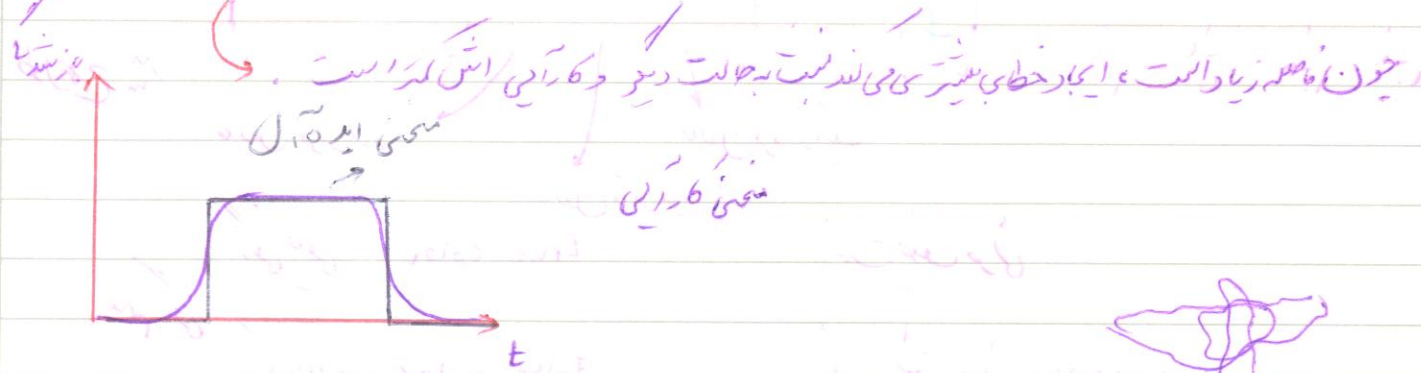 چون فاصله زیاد است، ایجاد خطای بیشتری می کند نسبت به حالت دیگر و کارآیی اش کمتر است .
منحنی ایده آل
منحنی کارآیی
t